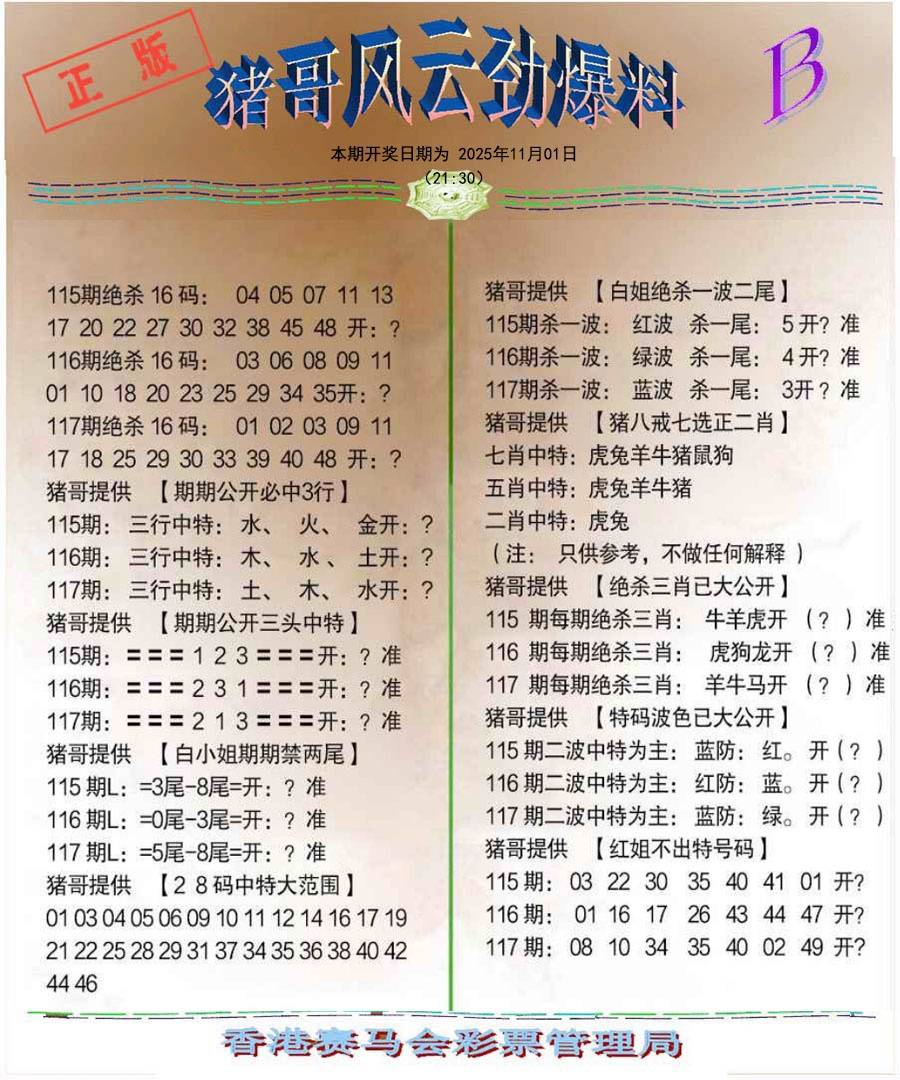 正版
猪哥风云劲爆料
B
本期开奖日期为 2025年11月01日
(21:30)
115期绝杀 16 码: 04 05 07 11 13
17 20 22 27 30 32 38 45 48 开:?
116期绝杀 16 码: 03 06 08 09 11
01 10 18 20 23 25 29 34 35开:?
117期绝杀 16 码: 01 02 03 09 11
17 18 25 29 30 33 39 40 48 开:?
猪哥提供 【期期公开必中3行】
115期: 三行中特: 水、 火、 金开:?
116期: 三行中特: 木、 水、 土开:?
117期: 三行中特: 土、 木、 水开:?
猪哥提供 【期期公开三头中特】
115期: === 1 2 3 ===开:? 准
116期: === 2 3 1 ===开:? 准
117期: === 2 1 3 ===开:? 准
猪哥提供 【白小姐期期禁两尾】
115 期L: =3尾-8尾=开:? 准
116 期L: =0尾-3尾=开:? 准
117 期L: =5尾-8尾=开:? 准
猪哥提供 【2 8 码中特大范围】
01 03 04 05 06 09 10 11 12 14 16 17 19
21 22 25 28 29 31 37 34 35 36 38 40 42
44 46
猪哥提供 【白姐绝杀一波二尾】
115期杀一波: 红波 杀一尾: 5 开? 准
116期杀一波: 绿波 杀一尾: 4 开? 准
117期杀一波: 蓝波 杀一尾: 3开? 准
猪哥提供 【猪八戒七选正二肖】
七肖中特: 虎兔羊牛猪鼠狗
五肖中特: 虎兔羊牛猪
二肖中特: 虎兔
(注: 只供参考,不做任何解释 )
猪哥提供 【绝杀三肖已大公开】
115 期每期绝杀三肖: 牛羊虎开 (? ) 准
116 期每期绝杀三肖: 虎狗龙开 (? ) 准
117 期每期绝杀三肖: 羊牛马开 (? ) 准
猪哥提供 【特码波色已大公开】
115 期二波中特为主: 蓝防: 红。 开 (? )
116 期二波中特为主: 红防: 蓝。 开 (? )
117 期二波中特为主: 蓝防: 绿。 开 (? )
猪哥提供 【红姐不出特号码】
115 期: 03 22 30 35 40 41 01 开?
116 期: 01 16 17 26 43 44 47 开?
117 期: 08 10 34 35 40 02 49 开?
香港赛马会彩票管理局